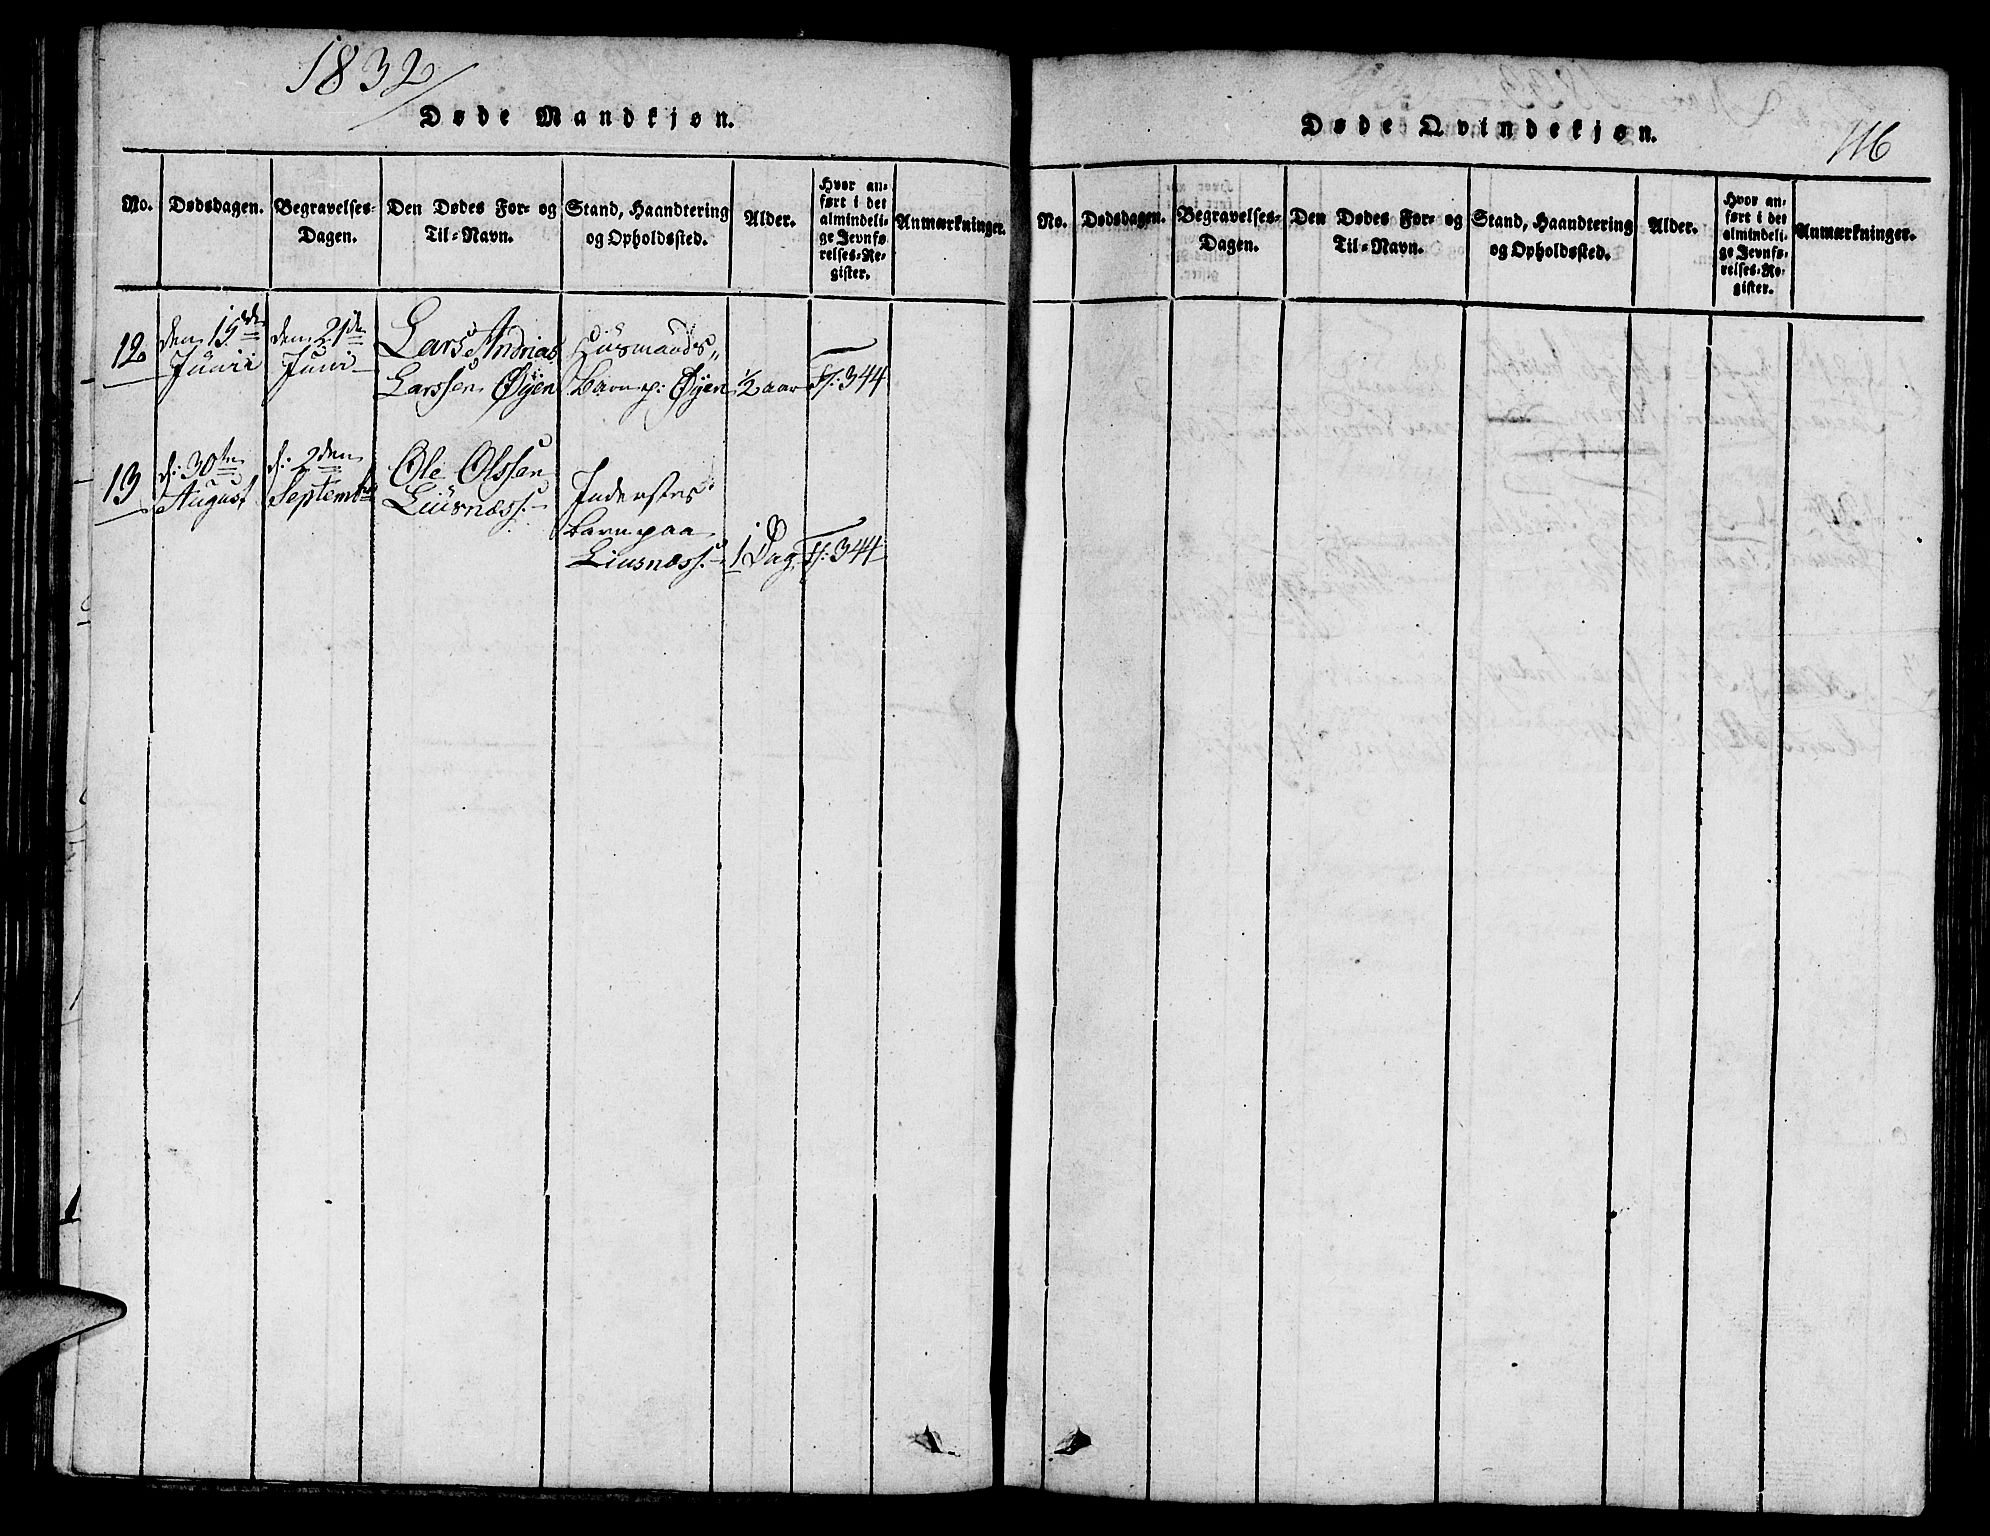 1832
Døde Mandkjøn.
No. Dødsdagen. Begravelses-Dagen. Den Dødes For- og Til-Navn. Stand, Haandtering og Opholdssted. Alder. Hvor anført i det almindelige Jevnførelses-Register. Anmærkninger.
12 den 15de Junii den 21de Juni Lars Andrias Larssen Øÿen Huusmands„ Barn p: Øÿen ½ aar F/: 344
13 d: 30te August d: 2den Septembr Ole Olssen Liusnæss: Inderstes Barn paa Liusnæss: 1 Dag F/: 344
Døde Qvindekjøn.
116
No. Dødsdagen. Begravelses-Dagen. Den Dødes For- og Til-Navn. Stand, Haandtering og Opholdssted. Alder. Hvor anført i det almindelige Jevnførelses-Register. Anmærkninger.